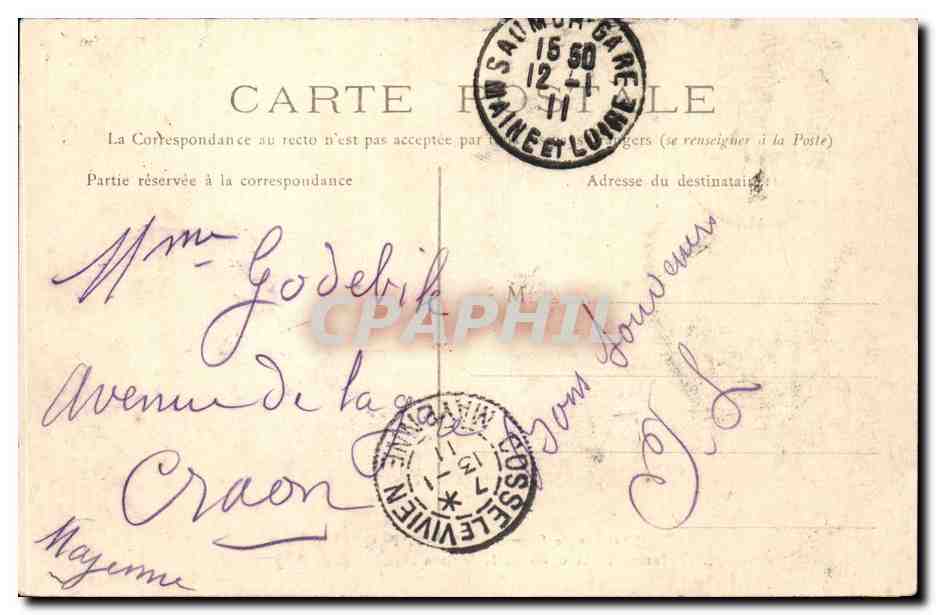 SAUMUR-GARE
15 50
12 -1
11
MAINE ET LOIRE
CARTE POSTALE
La Correspondance au recto n'est pas acceptée par étrangers (se renseigner à la Poste)
Partie réservée à la correspondance
Adresse du destinataire
Mme Godebik
M
CPAPHIL
Avenue de la gare
Craon
Mayenne
bons souvenirs
COSSE LE VIVIEN
7
13 -1
11
MAYENNE